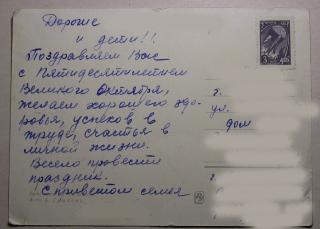 Дорогие
и дети!!
Поздравляем Вас
с Пятидесятилетием
Великого Октября,
желаем хорошего здо-
ровья, успехов в
труде, счастья в
личной жизни.
Весело провести
праздник.
С приветом семья
г.
ул.
дом
3